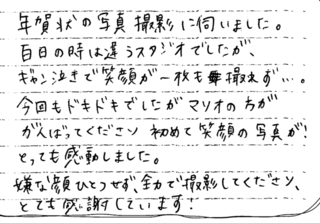 年賀状の写真撮影に伺いました。
百日の時は違うスタジオでしたが、
ギャン泣きで笑顔が一枚も撮れず…。
今回もドキドキでしたがマリオの方が
がんばってくださり 初めて笑顔の写真が!
とっても感動しました。
嫌な顔ひとつせず、全力で撮影してくださり、
とても感謝しています!